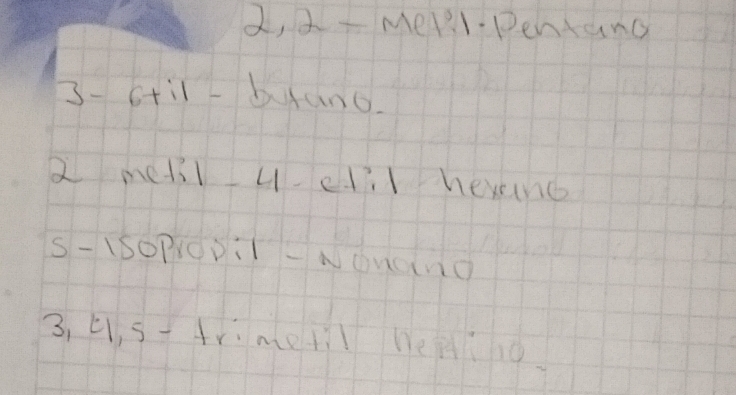 2,2 - Metil-Pentano
3- etil - butano.
2 metil - 4 - etil hexano
5-isopropil - Nonano
3,4,5 - trimetil